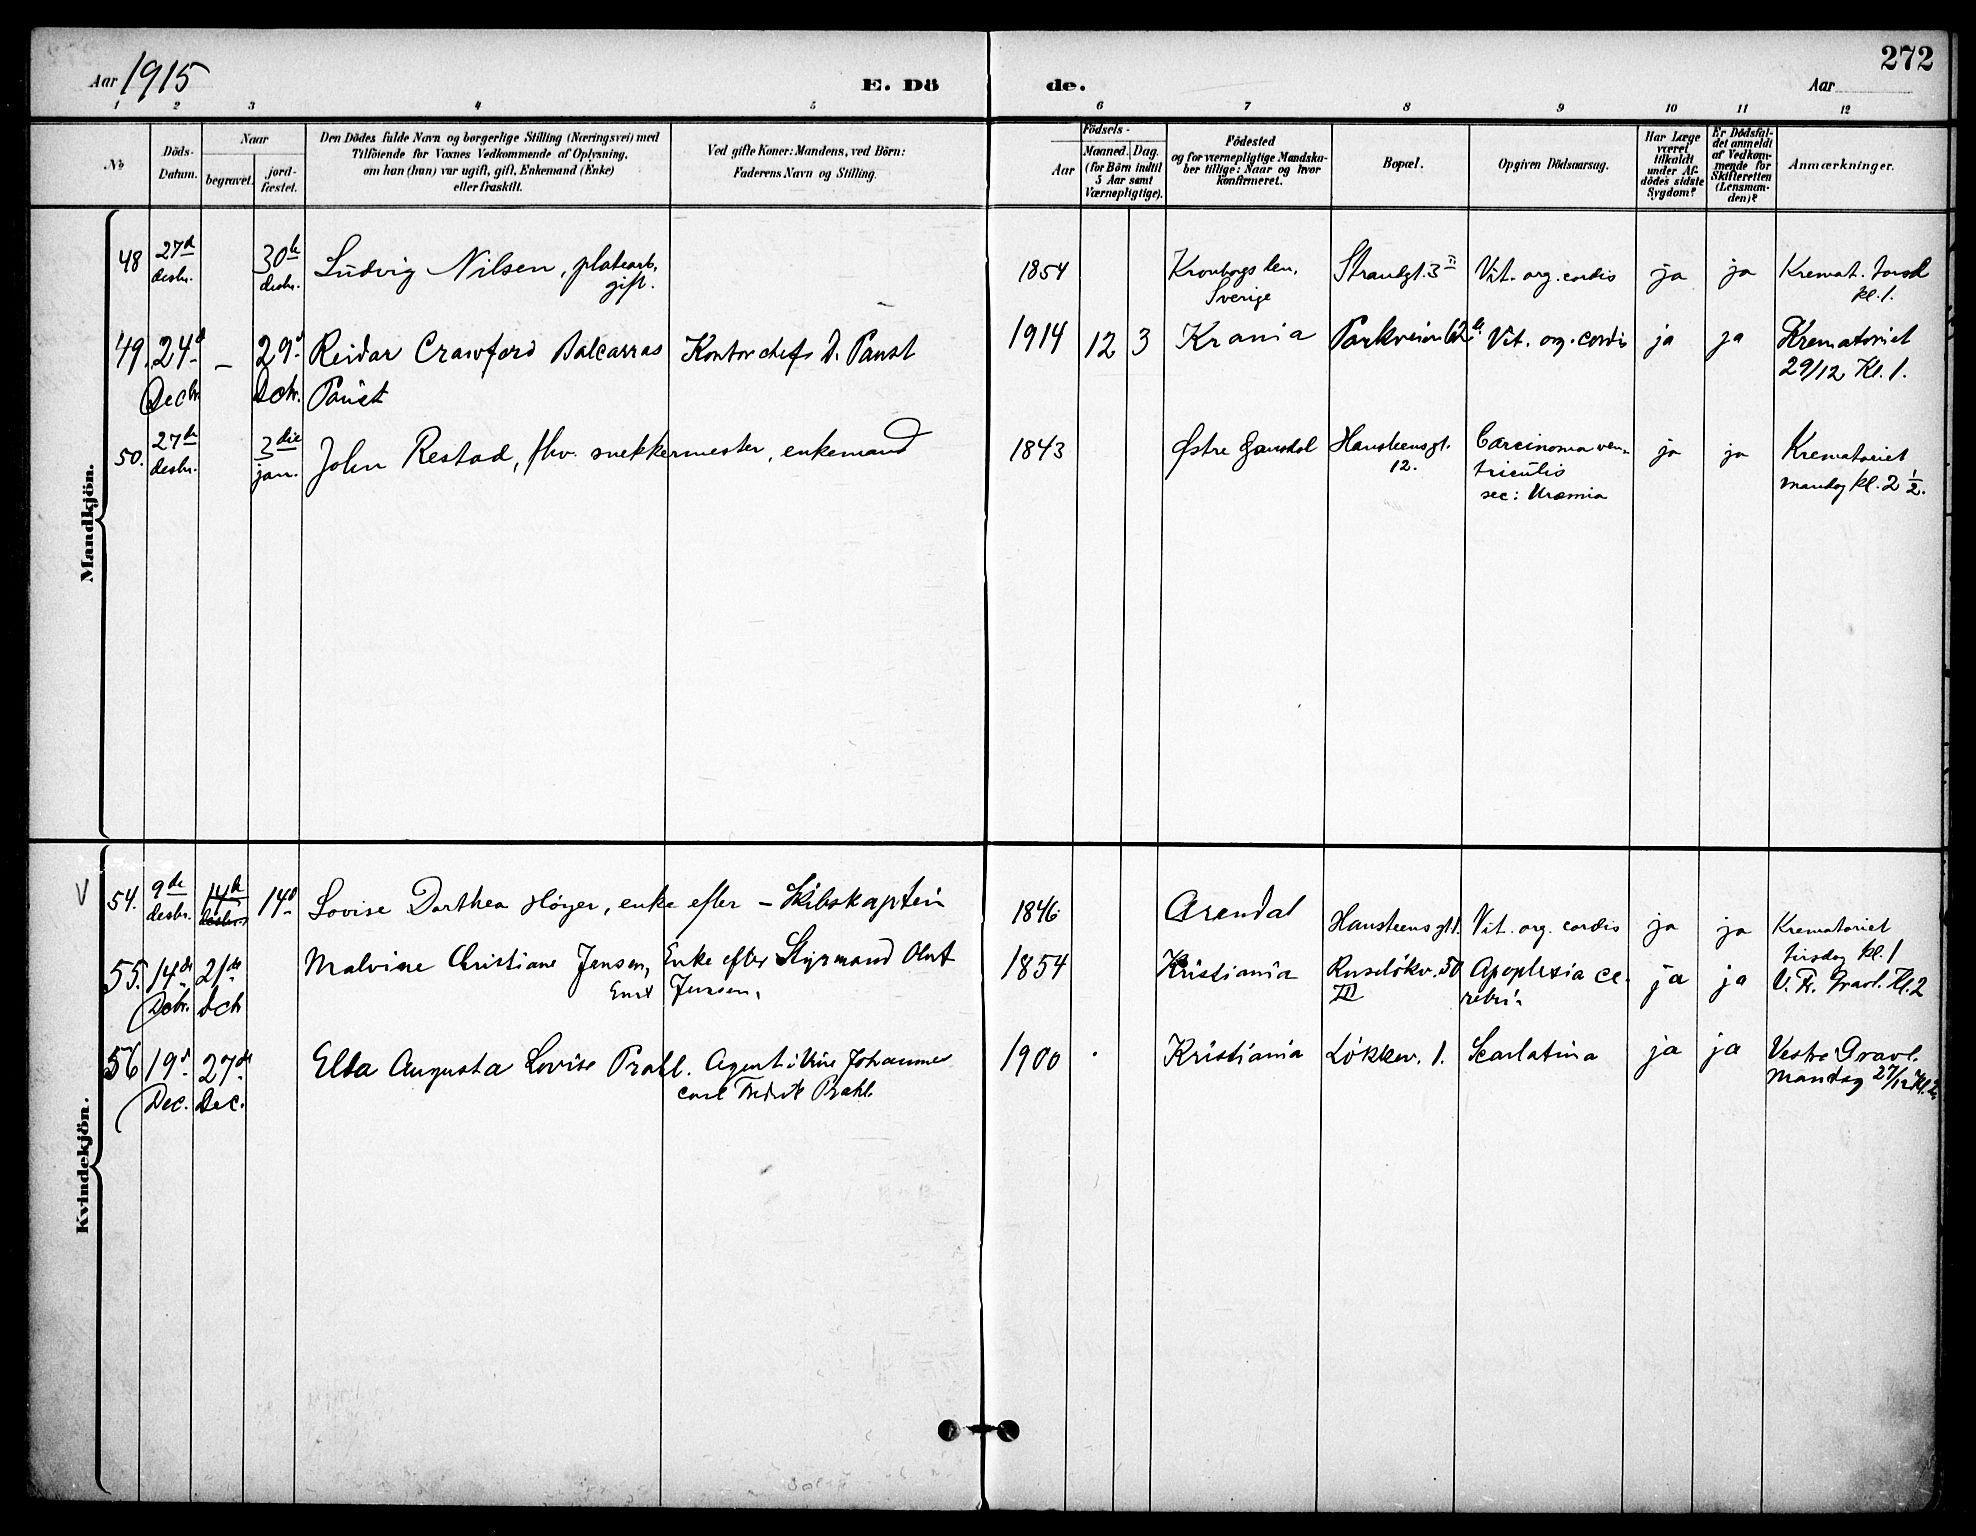 272
Aar 1915 E. Dö de. Aar
1 2 3 4 5 6 7 8 9 10 11 12
No
Döds-
Datum.
Naar
begravet.
jord-
fæstet.
Den Dödes fulde Navn og borgerlige Stilling (Næringsvei) med
Tilföiende for Voxnes Vedkommende af Oplysning,
om han (hun) var ugift, gift, Enkemand (Enke)
eller fraskilt.
Ved gifte Koner: Mandens, ved Börn:
Faderens Navn og Stilling.
Födsels-
Aar
Maaned. Dag.
(for Börn indtil
5 Aar samt
Værnepligtige).
Födested
og for værnepligtige Mandska-
ber tillige: Naar og hvor
konfirmeret.
Bopæl.
Opgiven Dödsaarsag.
Har Læge
været
tilkaldt
under Af-
dödes sidste
Sygdom?
Er Dödsfal-
det anmeldt
af Vedkom-
mende for
Skifteretten
(Lensman-
den)?
Anmærkninger.
Mandkjön.
48 27d 30te Ludvig Nilsen, platearb. 1854 Kronbergs len, Strandgt. 3 II Vit. org. cordis ja ja Kremat. torsd
desbr. desbr. gift. Sverige kl. 1.
49. 24d – 29d Reidar Crawford Balcarras Kontorchef D. Paust 1914 12 3 Krania Parkveien 62b Vit. org. cordis ja ja Krematoriet
Decbr. Dcbr. Paust 29/12 Kl. 1.
50. 27de 3die John Restad, fhv. snekkermester, enkemand 1843 Østre Hausteensgt. Carcinoma ven- ja ja Krematoriet
desbr. jan. 12. triculis mandag kl. 2 1/2.
sec: Uræmia
Kvindekjön.
V 54. 9de 14de 14d Lovise Dorthea Høyer, enke efter – Skibskaptein 1846 Arendal Hausteensgt 1. Vit. org. cordis ja ja Krematoriet
desbr. desbr. tirsdag kl. 1
55. 14de 21de Malvine Christiane Jensen, Enke efter Styrmand Olut 1854 Kristiania Ruseløkv. 50 Apoplexia ce- ja ja V. Kr. Gravl. Kl. 2
Dcbr. Dcb Jensen, III rebri
56 19d 27de Elsa Augusta Lovise Prahl. Agent i Johannes 1900 Kristiania Løkkev. 1. Scarlatina ja ja Vestre Gravl.
Dec. Dec. Carl Fredrik Prahl. Mandag 27/12 Kl. 2